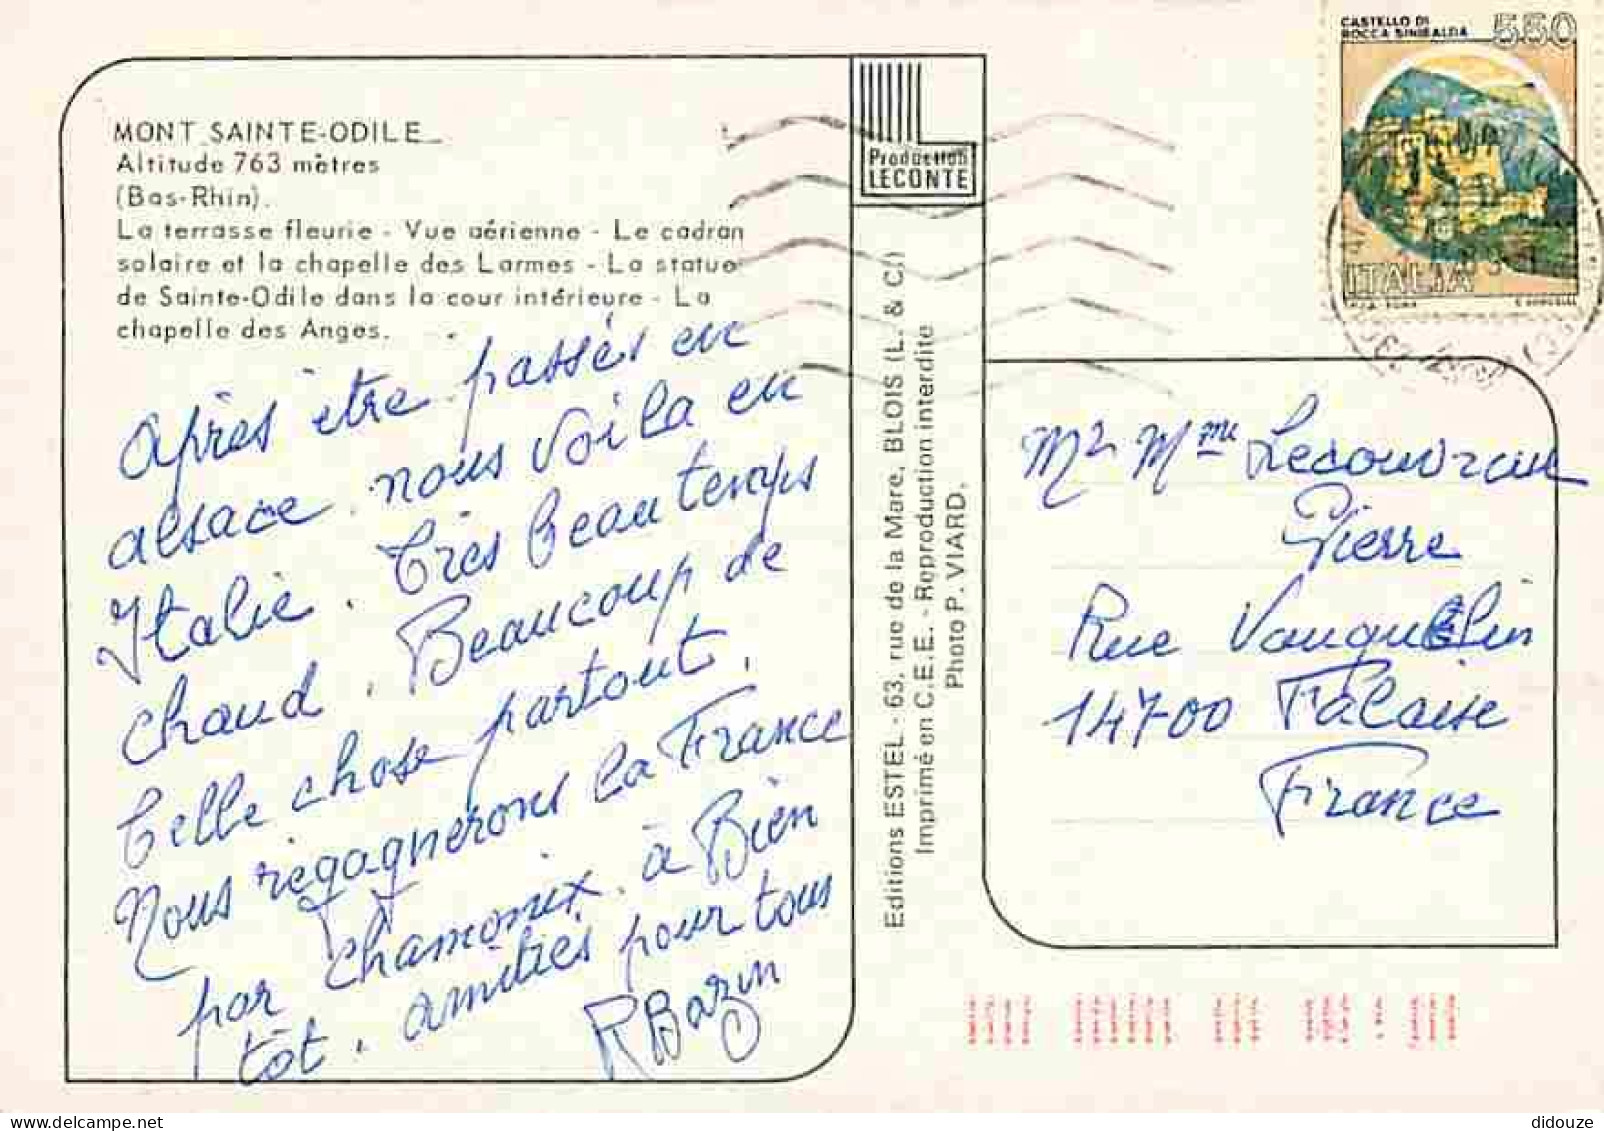 MONT SAINTE-ODILE
Altitude 763 mètres
(Bas-Rhin).
La terrasse fleurie - Vue aérienne - Le cadran
solaire et la chapelle des Larmes - La statue
de Sainte-Odile dans la cour intérieure - La
chapelle des Anges.
après être passés en
alsace. nous voila en
Italie. Très beau temps
chaud. Beaucoup de
belle chose partout.
Nous regagnerons la France
par chamonix. à Bien
tôt. amitiés pour tous
RBazin
Production
LECONTE
Editions ESTEL - 63, rue de la Mare, BLOIS (L. & C.)
Imprimé en C.E.E. - Reproduction interdite
Photo P. VIARD.
CASTELLO DI
ROCCA SINIBALDA
550
ITALIA
Mr Mme Lecouvreur
Pierre
Rue Vauquelin
14700 Falaise
France
didouze